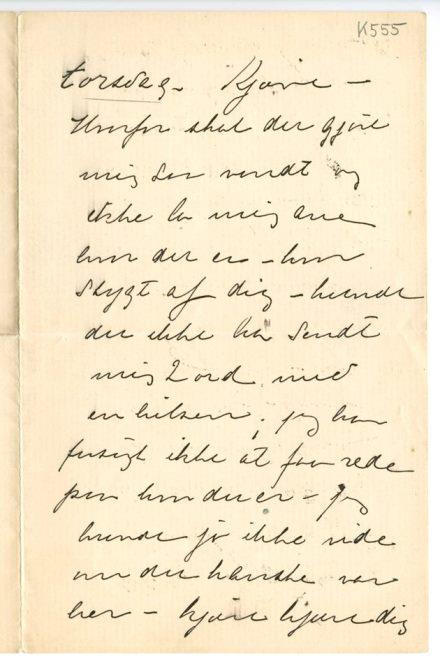 K555
torsdag. Kjære –
Hvorfor skal du gjøre
mig saa vondt og
ikke la mig ane
hvor du er – hvor
stygt af dig – kunde
du ikke ha sendt
mig 2 ord med
en hilsen, jeg har
ikke at faa rede
paa hvor du er – jeg
kunde jo ikke vide
om du kanske var
her – kjære kjære dig